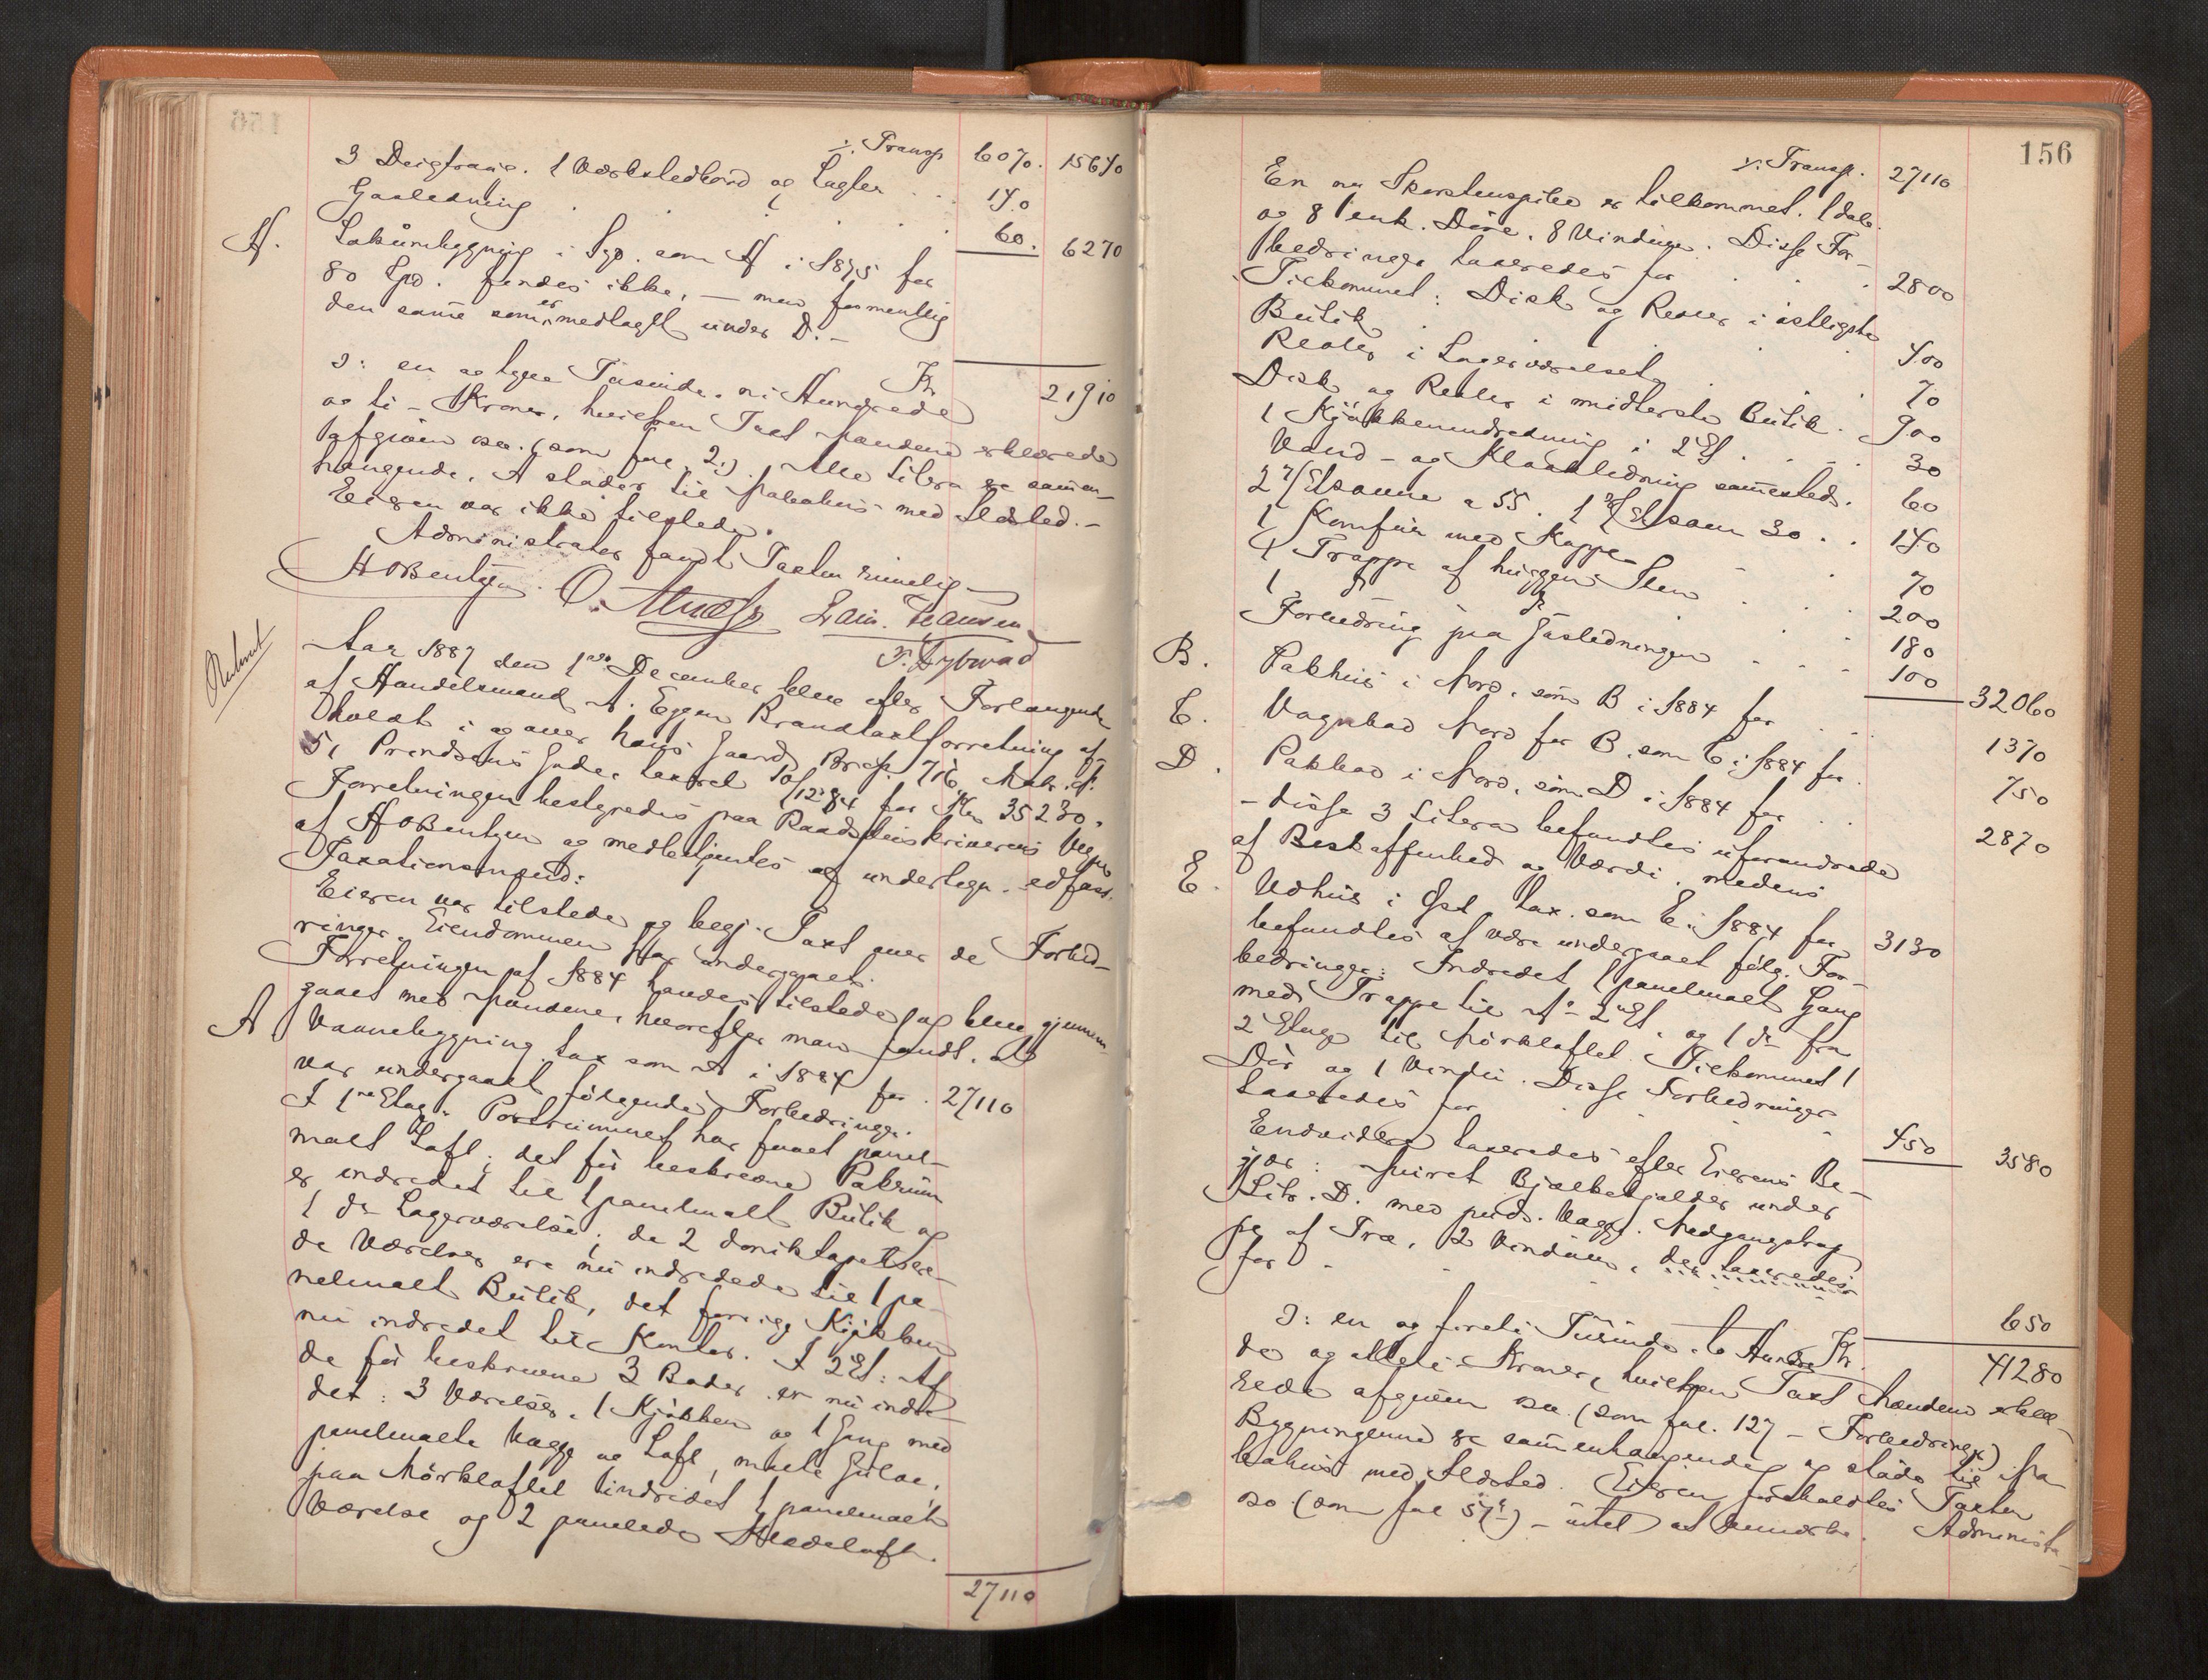 156
⁒ Transp 6070. 15640
3 Deigtraug. 1 Værkstedbord og Lagler . . 140
Gasledning . . . . . 60. 6270
H. Lokumbygning i Syd. som H i 1875 for
80 Spd. findes ikke, — men formentlig
den samme som er medtaget under D. —
Kr 21910
ɔ: en og tyve Tusinde, ni Hundrede
og ti – Kroner, hvilken Taxt Mændene erklærede
afgiven osv. (som fol. 2.). Alle Litera ere sammen-
hængende. A støder til Nabohus med Ildsted. –
Eieren var ikke tilstede.
Administrator fandt Taxten rimelig –
HOBentzen. O. Hansen
Aar 1887 den 1ste December blev efter Forlangende
af Handelsmand A. Eggen Brandtaxtforretning af-
holdt i og over hans Gaard, Brcp. 716, Matr. N.
51 Prindsens Gade, taxeret 10/12 84 for Kr 35230.
Forretningen bestyredes paa Raadstueskriverens Vegne
af HOBentzen og medbetjentes af undertegn. edfæst.
Taxationsmænd:
Eieren var tilstede og begj. Taxt over de Forbed-
ringer, Eiendommen har undergaaet.
Forretningen af 1884 havdes tilstede og blev gjennem-
gaaet med Mændene, hvorefter man fandt, at
A Vaanebygning tax som A i 1884 for . 27110
var undergaaet følgende Forbedringer.
I 1ste Etage: Portrummet har faaet panel-
malt Loft; det før beskrevne Pakrum
er indredet til 1 panelmalt Butik og
1 do Lagerværelse; de 2 doniktapetsere-
de Værelser ere nu indredede til 1 pa-
nelmalt Butik, det forrige Kjøkken
nu indredet til Kontor. I 2 Et: Af
de før beskrevne 3 Boder er nu indre-
det: 3 Værelser, 1 Kjøkken og 1 Gang med
panelmalte Vægge og Loft, malte Gulve,
paa Mørkloftet indredet 1 panelmalt
Værelse og 2 panelede Klædeloft.
27110
156
⁒ Transp. 27110
En ny Skorstenspibe er tilkommet. 1 dob.
og 8 enk. Døre, 8 Vinduer. Disse For-
bedringer taxeredes for . . . 2800
Tilkommet: Disk og Reoler i østligste
Butik . . . . 400
Reoler i Lagerværelset . . . 70
Disk og Reoler i midterste Butik . 900
1 Kjøkkenindredning i 2 Et . . . 30
Vand- og Kloakledning sammesteds . 60
2 Etsovne a 55. 1 Etsovn 30 . . 140
1 Komfur med Kappe . . . 70
1 Trappe af huggen Sten . . . 200
1 do do . . 180
Forbedring paa Gasledningen . . . 100 32060
B. Pakhus i Nord, som B i 1884 for . . 1370
C. Vognbod Nord for B, som C i 1884 for . 750
D. Pakbod i Nord, som D i 1884 for . . 2870
– disse 3 Litera befandtes uforandrede
af Beskaffenhed og Værdi, medens
E. Udhus i Øst, tax. som E i 1884 for 3130
befandtes at være undergaaet følg. For-
bedringer: Indredet 1 panelmalt Gang
med Trappe til A's 2 Et. og 1 do fra
2 Etage til Mørkloftet. Tilkommet 1
Dør og 1 Vindu. Disse Forbedringer
taxeredes for . . . 450 3580
Endvidere taxeredes efter Eierens Be-
gjær: Muret Bjælkekjælder under
Litr. D. med puds. Vægge, Nedgangstrap-
pe af Træ, 2 Vinduer, der taxeredes
for . . . . 650
Kr. 41280
ɔ: en og firti Tusinde, to Hundre-
de og otteti Kroner, hvilken Taxt Mændene erklæ-
rede afgiven osv. (som fol. 127 – Forbedringer)
Bygningerne ere sammenhængende og støde til Na-
bohus med Ildsted. Eieren foreholdtes Taxten
osv (som fol 57) – intet at bemærke. Administra-